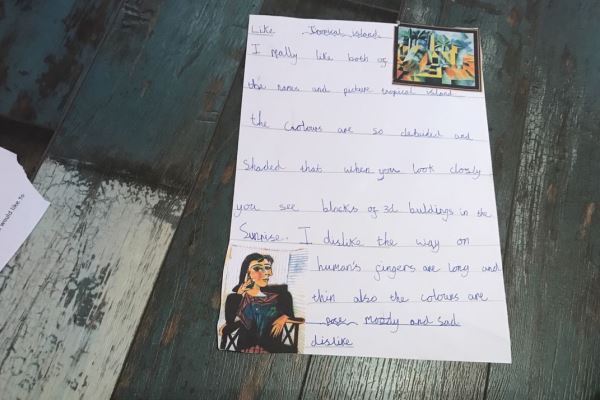 Like Tropical island
I really like both of
the names and picture tropical island
the Colours are so detailed and
Shaded that when you look closly
you see blocks of 3d buildings in the
Sunrise. I dislike the way on
human's fingers are long and
thin also the colours are
moody and sad
dislike
would like to